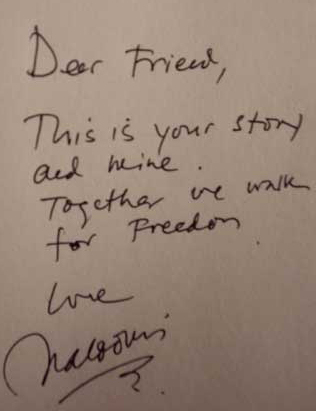 Dear Friend,
This is your story
and mine.
Together we walk
for Freedom.
Love